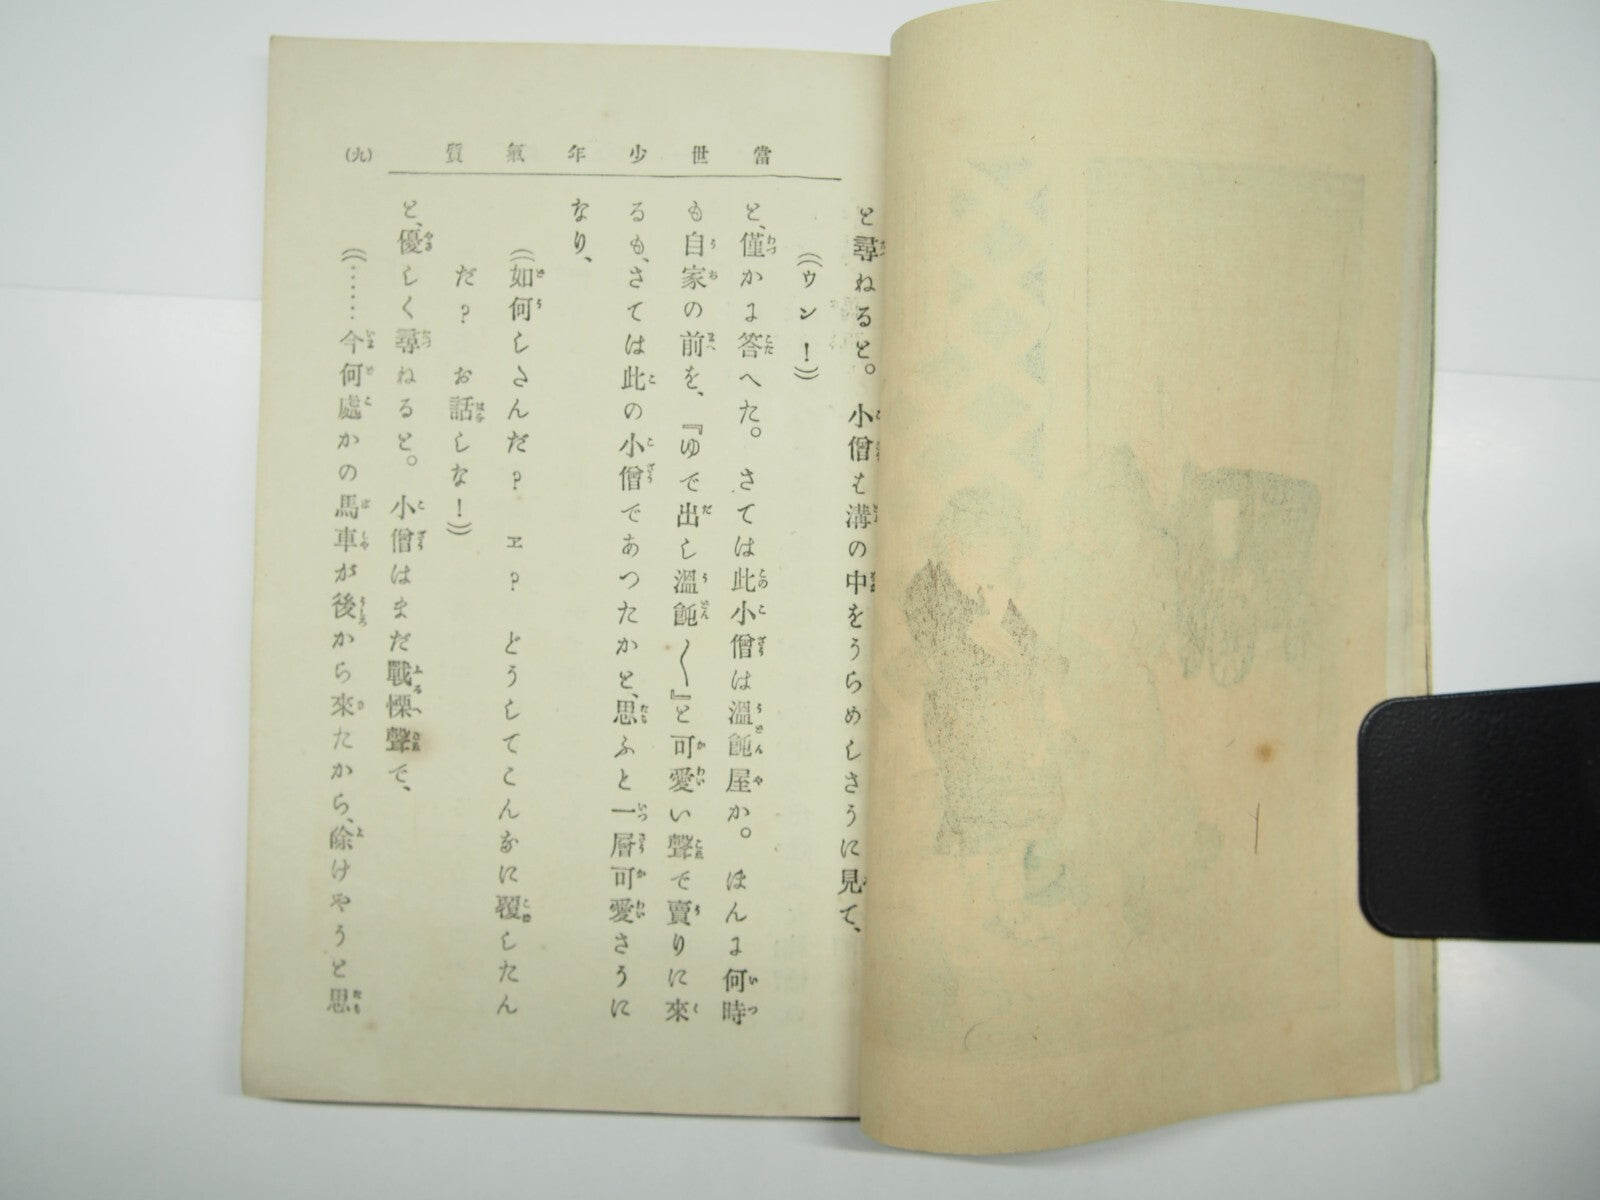 當世少年氣質
(九)
と尋ねると。小僧は溝の中をうらめしさうに見て、
((ウン!))
と、僅かに答へた。さては此小僧は溫飩屋か。ほんに何時
も自家の前を、『ゆで出し溫飩〱』と可愛い聲で賣りに來
るも、さては此の小僧であつたかと、思ふと一層可愛さうに
なり、
((如何しさんだ?ヱ?どうしてこんなに覆したん
だ?お話しな!))
と、優しく尋ねると。小僧はまだ戰慄聲で、
((……今何處かの馬車が後から來たから、除けやうと思